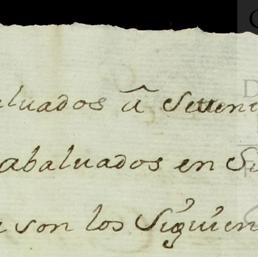 aluados â Setten
abaluados en Si
e son los Siguien